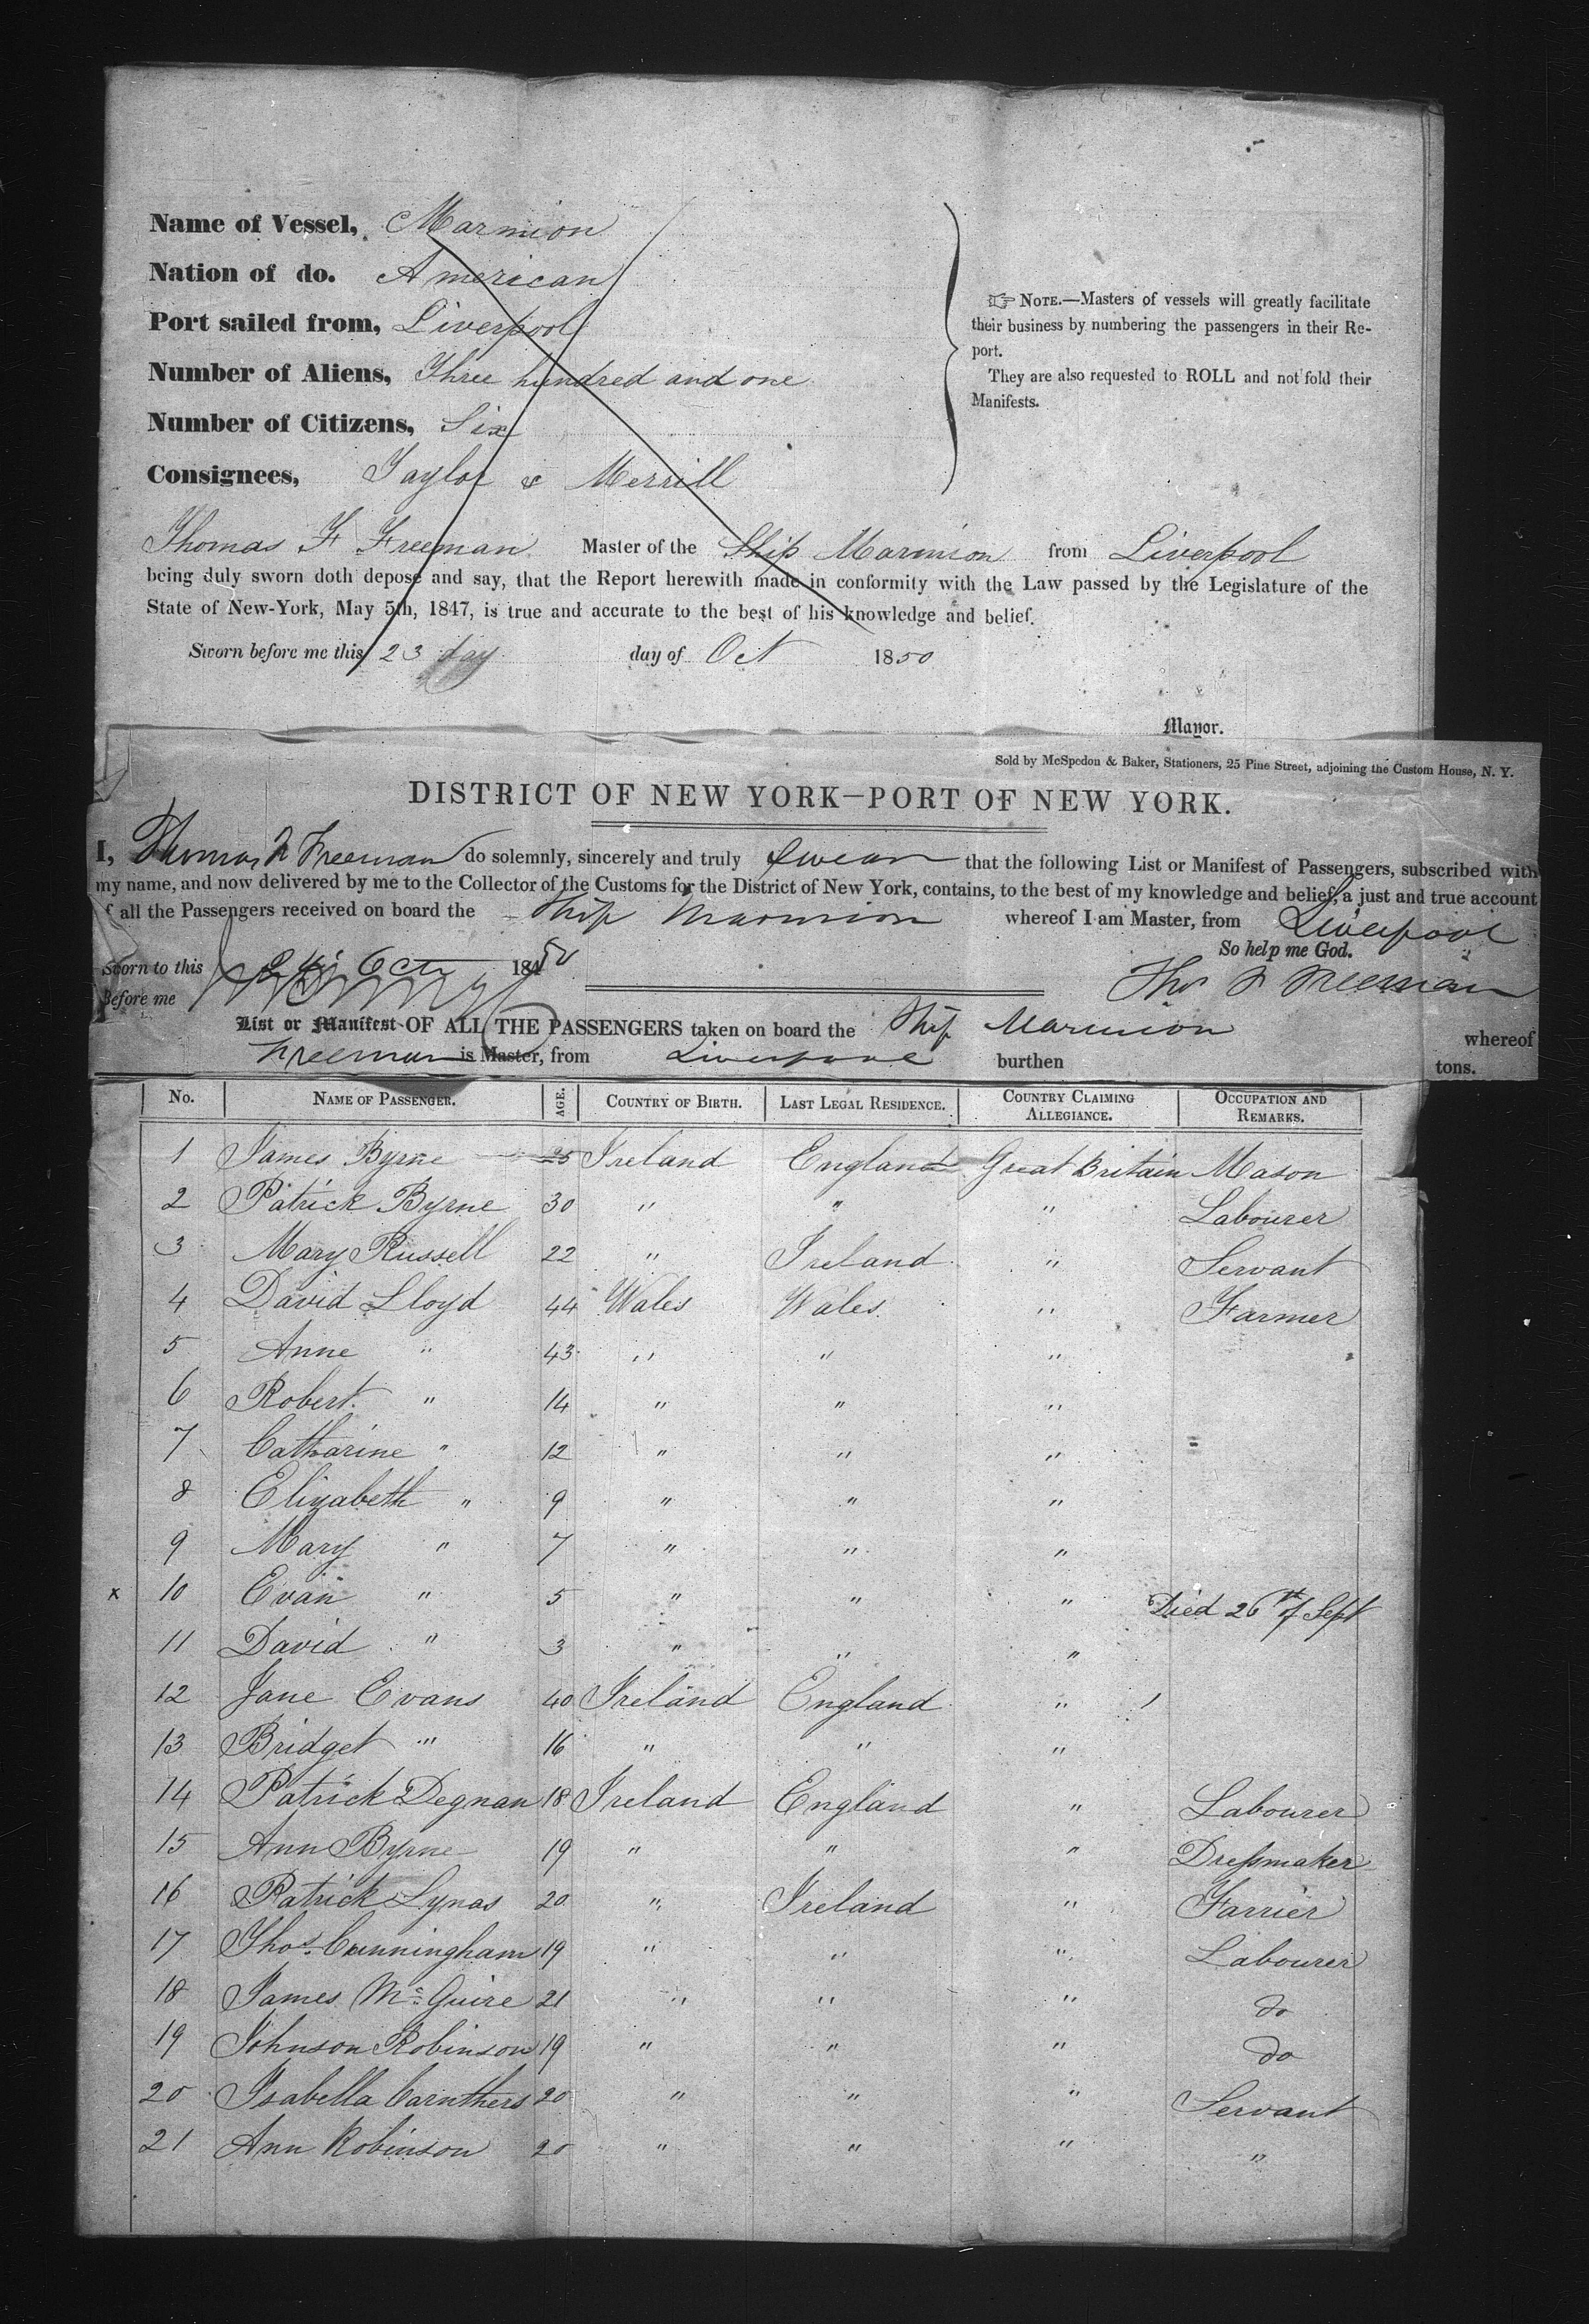 Name of Vessel, Marmion
Nation of do. American
Port sailed from, Liverpool
Number of Aliens, Three hundred and one
Number of Citizens, Six
Consignees, Taylor & Merrill
☞ NOTE.—Masters of vessels will greatly facilitate
their business by numbering the passengers in their Re-
port.
They are also requested to ROLL and not fold their
Manifests.
Thomas F Freeman Master of the Ship Marmion from Liverpool
being duly sworn doth depose and say, that the Report herewith made in conformity with the Law passed by the Legislature of the
State of New-York, May 5th, 1847, is true and accurate to the best of his knowledge and belief.
Sworn before me this 23 day day of Oct 1850
Mayor.
Sold by McSpedon & Baker, Stationers, 25 Pine Street, adjoining the Custom House, N. Y.
DISTRICT OF NEW YORK—PORT OF NEW YORK.
I, Thomas F Freeman do solemnly, sincerely and truly swear that the following List or Manifest of Passengers, subscribed with
my name, and now delivered by me to the Collector of the Customs for the District of New York, contains, to the best of my knowledge and belief, a just and true account
of all the Passengers received on board the Ship Marmion whereof I am Master, from Liverpool
So help me God.
Sworn to this 24 Oct 1850
Before me Thos F Freeman
List or Manifest OF ALL THE PASSENGERS taken on board the Ship Marmion whereof
Freeman is Master, from Liverpool burthen tons.
No. NAME OF PASSENGER. AGE. COUNTRY OF BIRTH. LAST LEGAL RESIDENCE. COUNTRY CLAIMING ALLEGIANCE. OCCUPATION AND REMARKS.
1 James Byrne 25 Ireland England Great Britain Mason
2 Patrick Byrne 30 " " " Labourer
3 Mary Russell 22 " Ireland " Servant
4 David Lloyd 44 Wales Wales " Farmer
5 Anne " 43 " " "
6 Robert " 14 " " "
7 Catharine " 12 " " "
8 Elizabeth " 9 " " "
9 Mary " 7 " " "
x 10 Evan " 5 " " " Died 26th of Sept
11 David " 3 " " "
12 Jane Evans 40 Ireland England "
13 Bridget " 16 " " "
14 Patrick Degnan 18 Ireland England " Labourer
15 Ann Byrne 19 " " " Dressmaker
16 Patrick Lynas 20 " Ireland " Farrier
17 Thos. Cunningham 19 " " " Labourer
18 James McGuire 21 " " " do
19 Johnson Robinson 19 " " " do
20 Isabella Caruthers 20 " " " Servant
21 Ann Robinson 20 " " " "